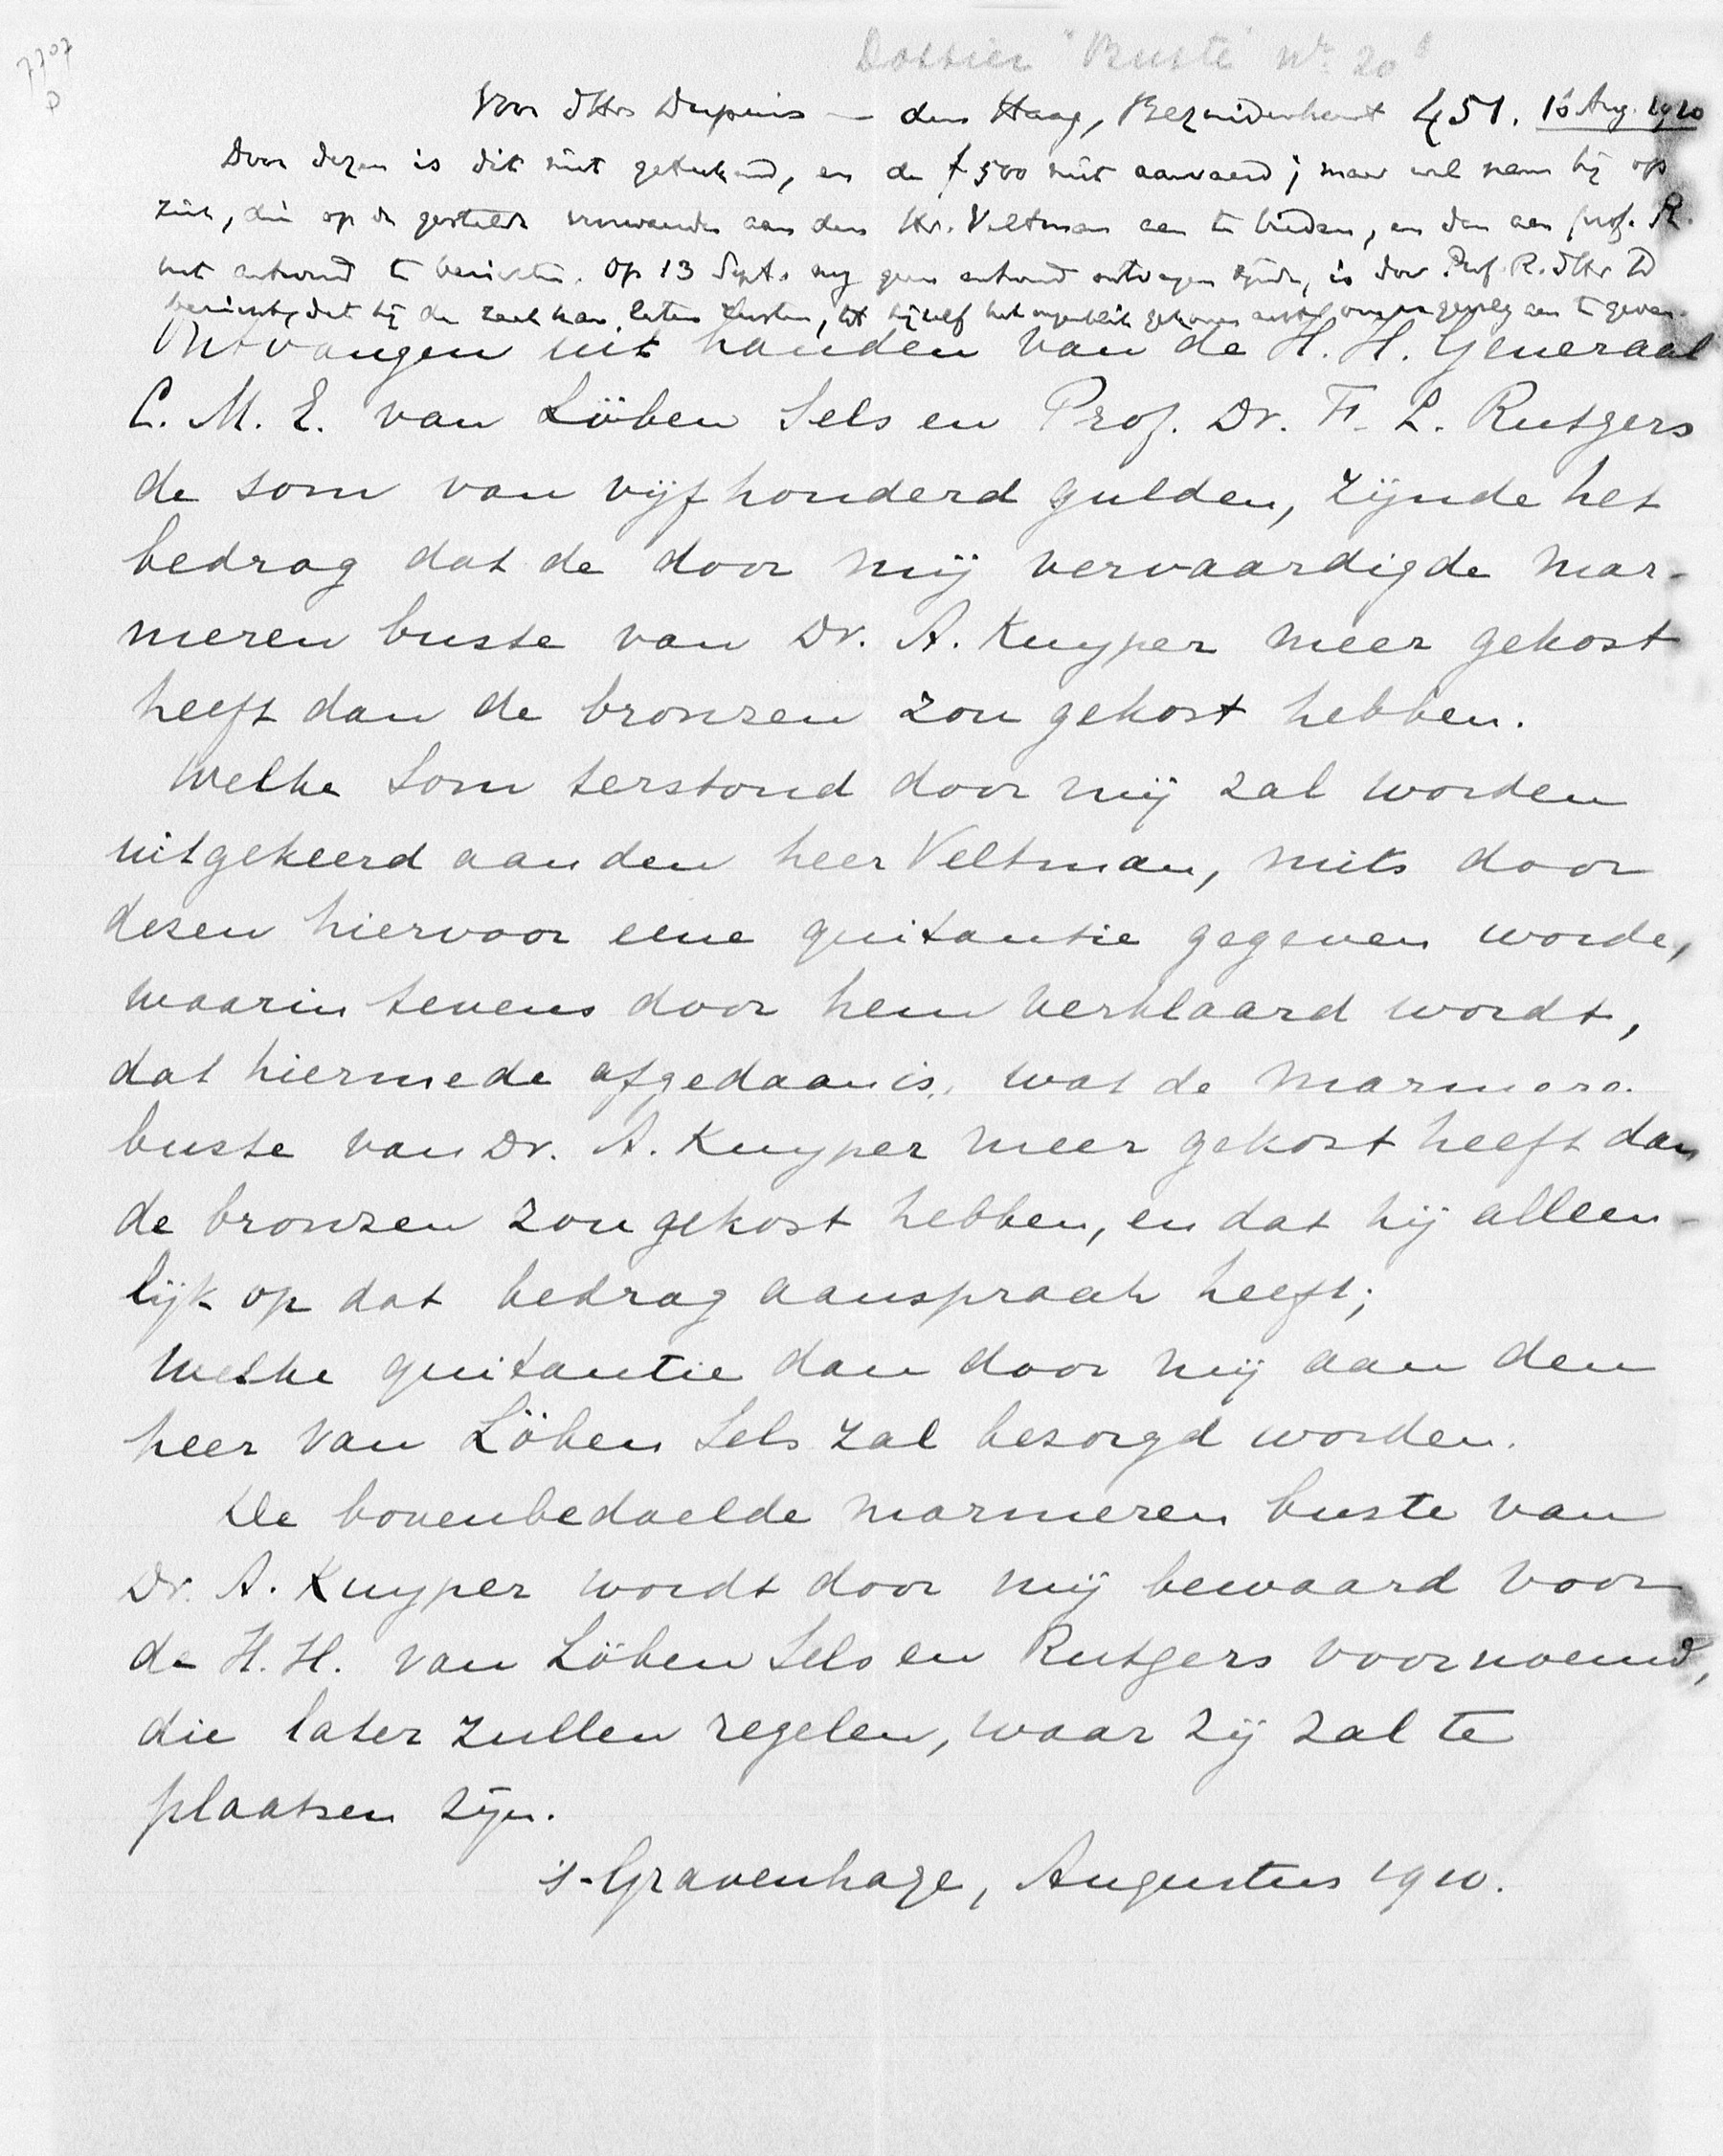 7707
Dossier "Buste" Nr. 20
Voor dHr Dupuis — den Haag, Bezuidenhout 451. 16 Aug. 1910
Door dezen is dit niet geteekend, en de f 500 niet aanvaard; maar wel nam hij op
zich, die op de gestelde voorwaarde aan den Hr. Veltman aan te bieden, en dan aan prof. R.
het antwoord te berichten. Op 13 Sept. nog geen antwoord ontvangen zijnde, is door Prof. R. dHr D
bericht, dat hij de zaak kan laten rusten, tot hijzelf het oogenblik gekomen acht om er gevolg aan te geven.
Ontvangen uit handen van de H. H. Generaal
C. M. E. van Löben Sels en Prof. Dr. F. L. Rutgers
de som van vijfhonderd gulden, zijnde het
bedrag dat de door mij vervaardigde mar-
meren buste van Dr. A. Kuyper meer gekost
heeft dan de bronzen zou gekost hebben.
Welke som terstond door mij zal worden
uitgekeerd aan den heer Veltman, mits door
dezen hiervoor eene quitantie gegeven worde,
waarin tevens door hem verklaard wordt,
dat hiermede afgedaan is, wat de marmere
buste van Dr. A. Kuyper meer gekost heeft dan
de bronzen zou gekost hebben, en dat hij alleen-
lijk op dat bedrag aanspraak heeft;
Welke quitantie dan door mij aan den
heer van Löben Sels zal bezorgd worden.
De bovenbedoelde marmeren buste van
Dr. A. Kuyper wordt door mij bewaard voor
de H. H. van Löben Sels en Rutgers voornoemd,
die later zullen regelen, waar zij zal te
plaatsen zijn.
's-Gravenhage, Augustus 1910.